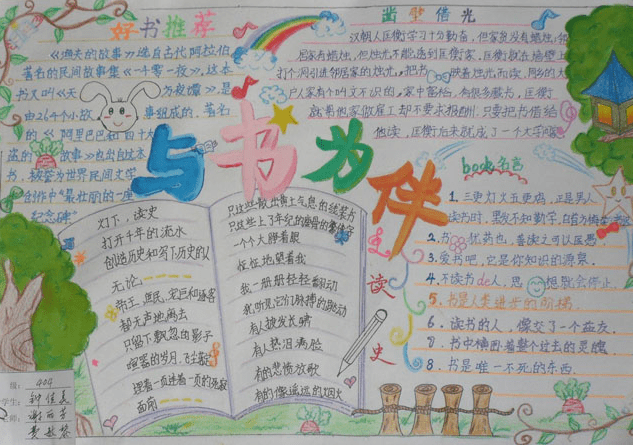 好书推荐
《渔夫的故事》选自古代阿拉伯
著名的民间故事集《一千零一夜》,这本
书又叫《天方夜谭》,是
由264个小故事组成的,著名
的《阿里巴巴和四十大
盗的故事》也出自这本
书,被誉为世界民间文学
创作中"最壮丽的一座
纪念碑"
凿壁借光
汉朝人匡衡学习十分勤奋,但家贫没有蜡烛,邻
居家有蜡烛,但烛光不能透到匡衡家,匡衡就在墙壁上
打个洞引进邻居家的烛光,把书映着烛光而读,同乡的大
户人家有个叫文不识的,家中富裕,有很多藏书,匡衡
就替他家做雇工却不要求报酬,只要把书借给
他读,匡衡后来就成了一个大学
与书为伴
灯下,读史
打开千年的流水
创造历史和写下历史的人
无论
帝王、庶民、宠臣和逐客
都无声地离去
只留下飘忽的影子
喧嚣的岁月、飞尘
踩着一页连着一页的
面前
一个大睁着眼
怔怔地望着我
我一册册轻轻翻动
我听见它们脉搏的跳动
有人披发长啸
有人热泪满脸
有的悲愤放歌
有的像遥远的烟火
读史
book名言
1.三更灯火五更鸡,正是男人
读书时,黑发不知勤学
2.书犹药也,善读之可以医愚
3.爱书吧,它是你知识的源泉
4.不读书de人,思想就会停止.
5.书是人类进步的阶梯.
6.读书的人,像交了一个益友.
7.书中横卧着整个过去的灵魂
8.书是唯一不死的东西.
404